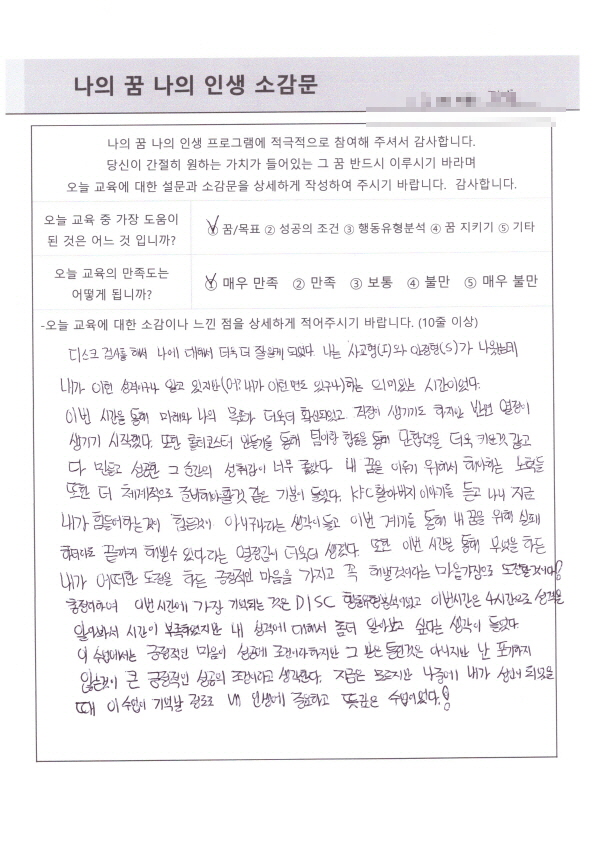 나의 꿈 나의 인생 소감문
나의 꿈 나의 인생 프로그램에 적극적으로 참여해 주셔서 감사합니다.
당신이 간절히 원하는 가치가 들어있는 그 꿈 반드시 이루시기 바라며
오늘 교육에 대한 설문과 소감문을 상세하게 작성하여 주시기 바랍니다. 감사합니다.
오늘 교육 중 가장 도움이
된 것은 어느 것 입니까?
① 꿈/목표 ② 성공의 조건 ③ 행동유형분석 ④ 꿈 지키기 ⑤ 기타
오늘 교육의 만족도는
어떻게 됩니까?
① 매우 만족 ② 만족 ③ 보통 ④ 불만 ⑤ 매우 불만
-오늘 교육에 대한 소감이나 느낀 점을 상세하게 적어주시기 바랍니다. (10줄 이상)
디스크 검사를 해서 나에 대해서 더욱 더 잘 알게 되었다. 나는 사고형(I)와 안정형(S)가 나왔는데
내가 이런 성격이구나 알고 있지만(어? 내가 이런면도 있구나)하는 의미있는 시간이었다.
이번 시간을 통해 미래와 나의 목표가 더욱더 확신되었고 걱정이 생기기도 하지만 반면 열정이
생기기 시작했다. 또한 롤러코스터 만들기를 통해 팀이랑 협동을 통해 단합력을 더욱 키운것 같고
다 만들고 성공한 그 순간의 성취감이 너무 좋았다. 내 꿈을 이루기 위해서 해야하는 노력들
또한 더 체계적으로 준비해야 할것 같은 기분이 들었다. KFC 할아버지 이야기를 듣고 나니 지금
내가 힘들어하는것이 힘든것이 아니구나라는 생각이 들고 이번 계기를 통해 내 꿈을 위해 실패
하더라도 끝까지 해낼수 있다라는 열정감이 더욱더 생겼다. 또한 이번 시간을 통해 무엇을 하든
내가 어떠한 도전을 하든 긍정적인 마음을 가지고 꼭 해낼것이라는 마음가짐으로 도전할것이다!
총정리하여 이번시간에 가장 기억되는 것은 DISC 행동유형분석이었고 이번시간은 4시간으로 성격을
알아봐서 시간이 부족하였지만 내 성격에 대해서 좀더 알아보고 싶다는 생각이 들었다.
이 수업에서는 긍정적인 마음이 성공에 조건이라하지만 그 말은 틀린것은 아니지만 난 포기하지
않는것이 큰 긍정적인 성공의 조건이라고 생각한다. 지금은 모르지만 나중에 내가 성인이 되었을
때 이 수업이 기억날 정도로 내 인생에 중요하고 뜻깊은 수업이었다.!